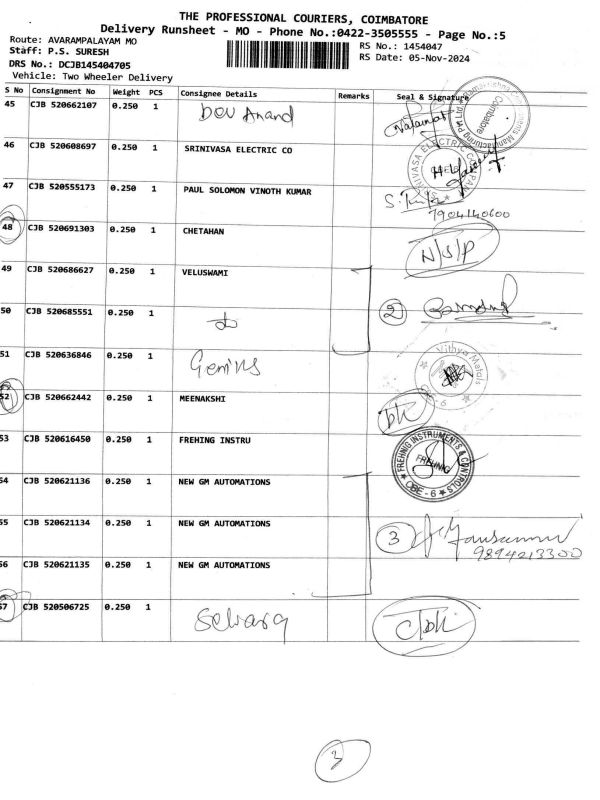 THE PROFESSIONAL COURIERS, COIMBATORE
Delivery Runsheet - MO - Phone No.:0422-3505555 - Page No.:5
Route: AVARAMPALAYAM MO
RS No.: 1454047
Staff: P.S. SURESH
RS Date: 05-Nov-2024
DRS No.: DCJB145404705
Vehicle: Two Wheeler Delivery
S No Consignment No Weight PCS Consignee Details Remarks Seal & Signature
45 CJB 520662107 0.250 1 Dev Anand
Coimbatore
46 CJB 520608697 0.250 1 SRINIVASA ELECTRIC CO
47 CJB 520555173 0.250 1 PAUL SOLOMON VINOTH KUMAR
7904140600
48 CJB 520691303 0.250 1 CHETAHAN N/S/P
49 CJB 520686627 0.250 1 VELUSWAMI
50 CJB 520685551 0.250 1 2
51 CJB 520636846 0.250 1 Vithya Metals CBE-6
52 CJB 520662442 0.250 1 MEENAKSHI
53 CJB 520616450 0.250 1 FREHING INSTRU FREHNIG INSTRUMENTS & CONTROLS FREHNIG CBE - 6
54 CJB 520621136 0.250 1 NEW GM AUTOMATIONS
55 CJB 520621134 0.250 1 NEW GM AUTOMATIONS 3
9894213300
56 CJB 520621135 0.250 1 NEW GM AUTOMATIONS
57 CJB 520506725 0.250 1
3